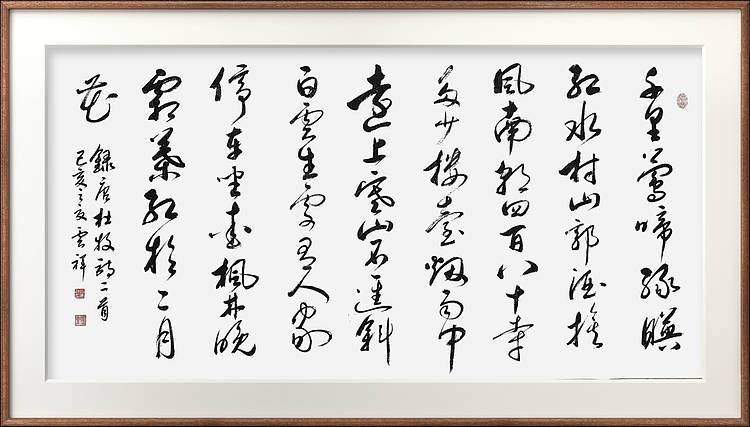 千里鶯啼綠暎
紅水村山郭酒旗
風南朝四百八十寺
多少樓臺烟雨中
遠上寒山石逕斜
白雲生處有人家
停車坐愛楓林晚
霜葉紅於二月
花
錄唐杜牧詩二首
己亥之夏雲祥